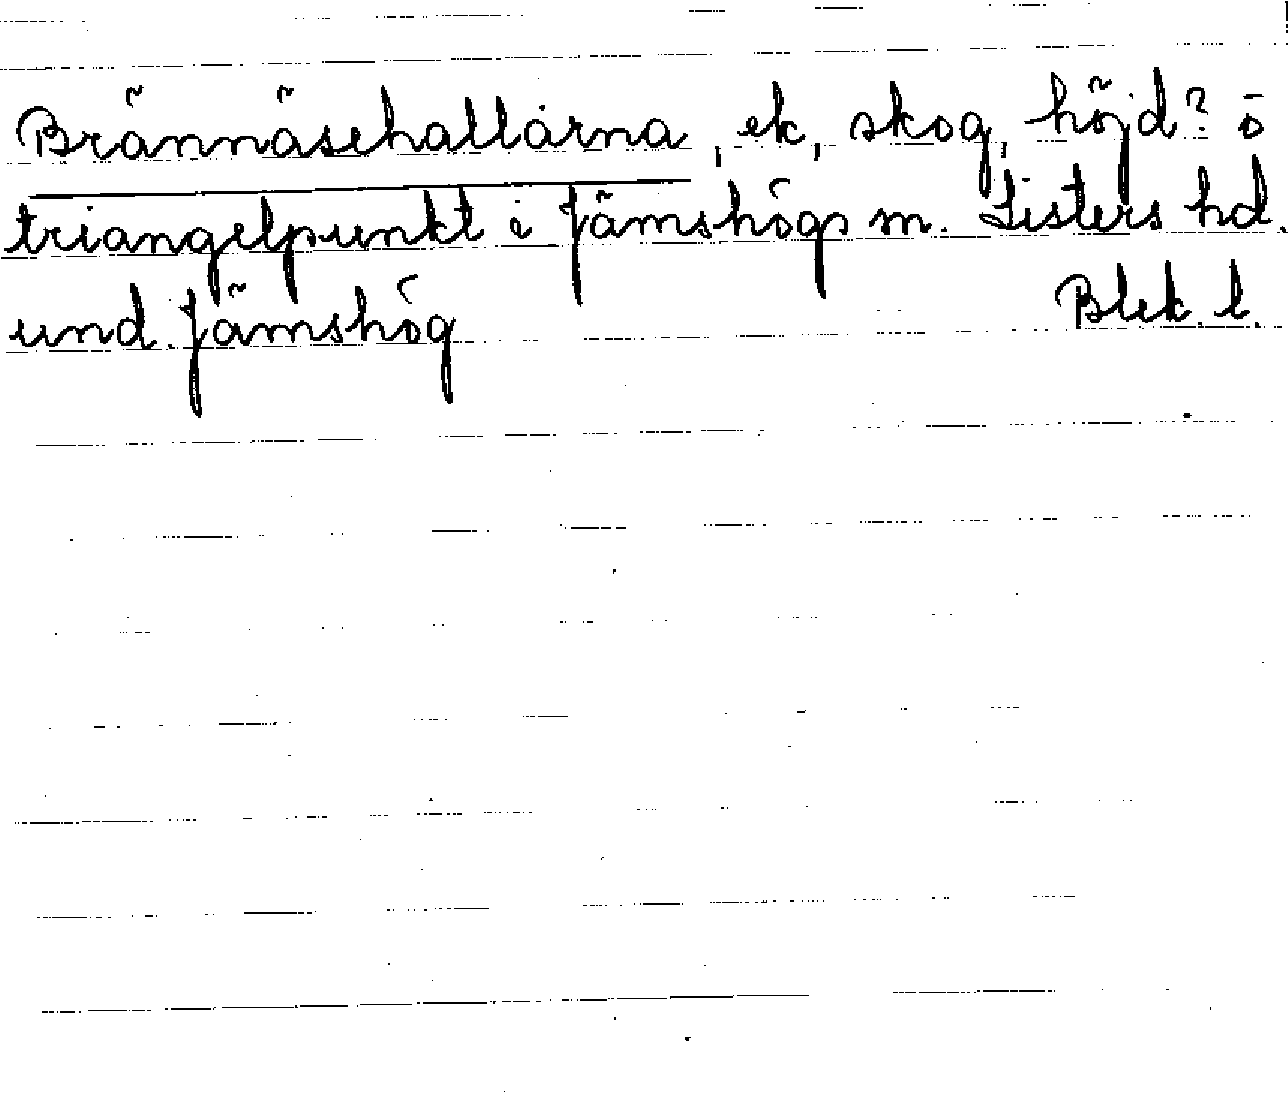 Brännäsehallarna, ek, skog, höjd? ö
triangelpunkt i Jämshögs sn. Listers hd.
und. Jämshög Blek. l.